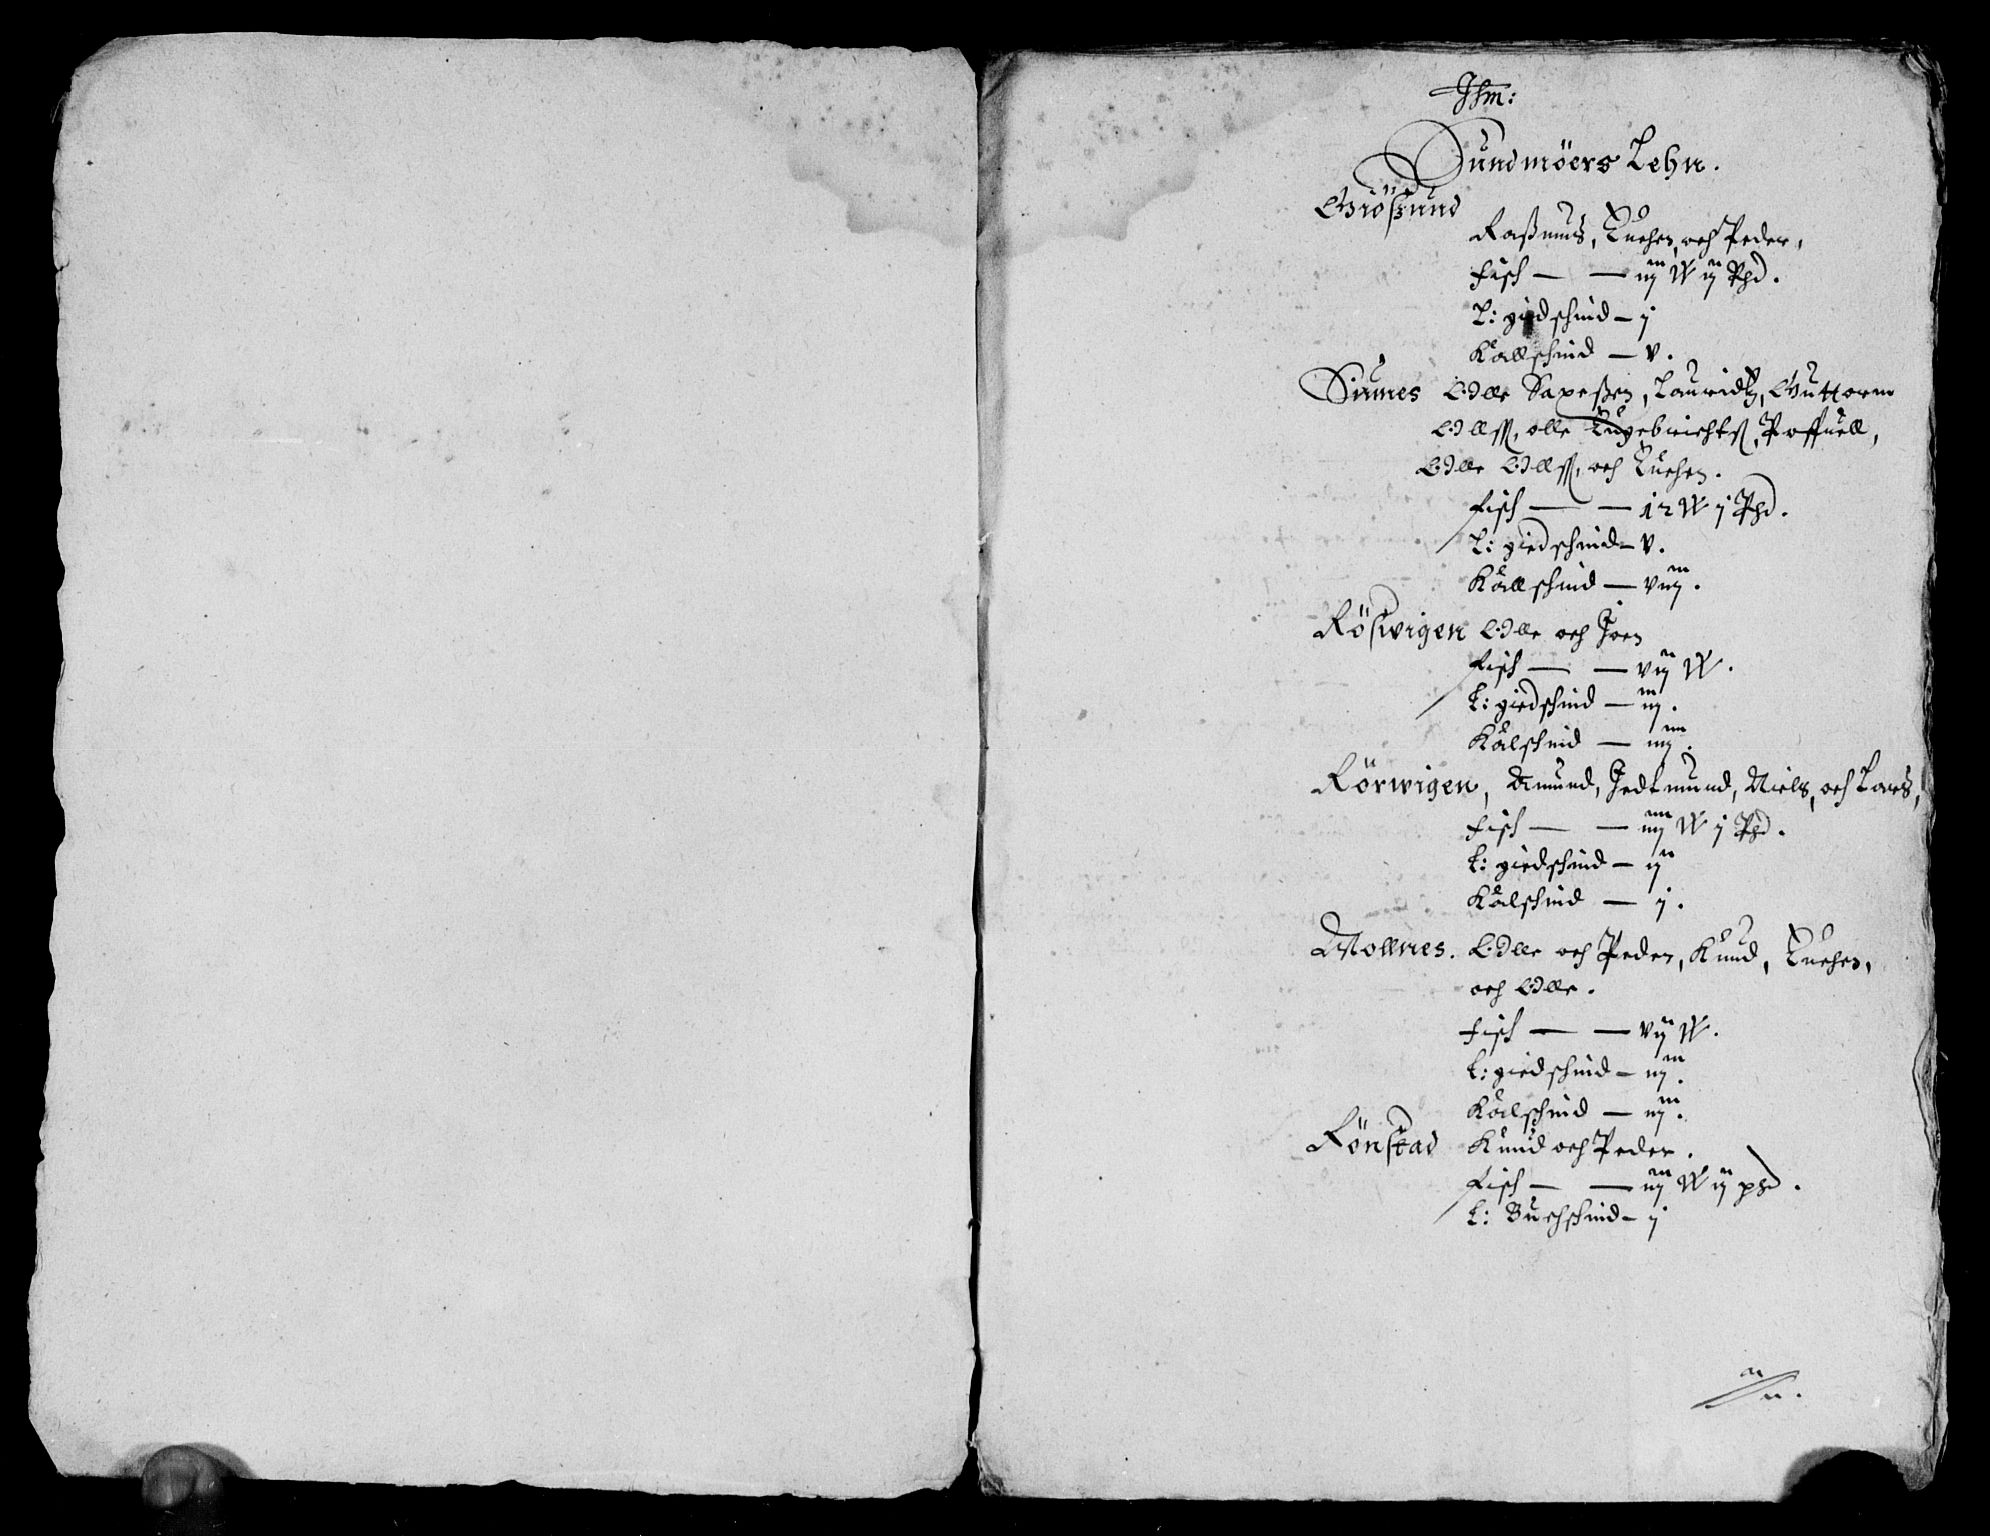 Ihm:
Sundmöers Lehn.
Griößund
Raßmus, Knehen, och Peder,
fisch — — iij W ij Phd.
L: giedschind — j
Kallschind — v.
Sinnes Olle Saxeßen, Lauridtz, Guttorm
Ollss, olle Engebrichtß, Poffuell,
Olle Ollss, och Knehen.
fisch — — 12 W j Phd.
L: giedschind — v.
Kallschind — viij.
Röswigen Olle och Joen
fisch — — vij W.
L: giedschind — iij.
Kalschind — iiij.
Rörwigen, Amund, Jedtmund, Niels, och Lars,
fisch — — iiij W j Phd.
L: giedschind — ij
Kalschind — j.
Mollnes. Olle och Peder, Knud, Knehen,
och Olle.
fisch — — vij W.
L: giedschind — iij.
Kalschind — iij.
Rönstad Knud och Peder.
fisch — — iij W ij phd.
L: Buchschind — j